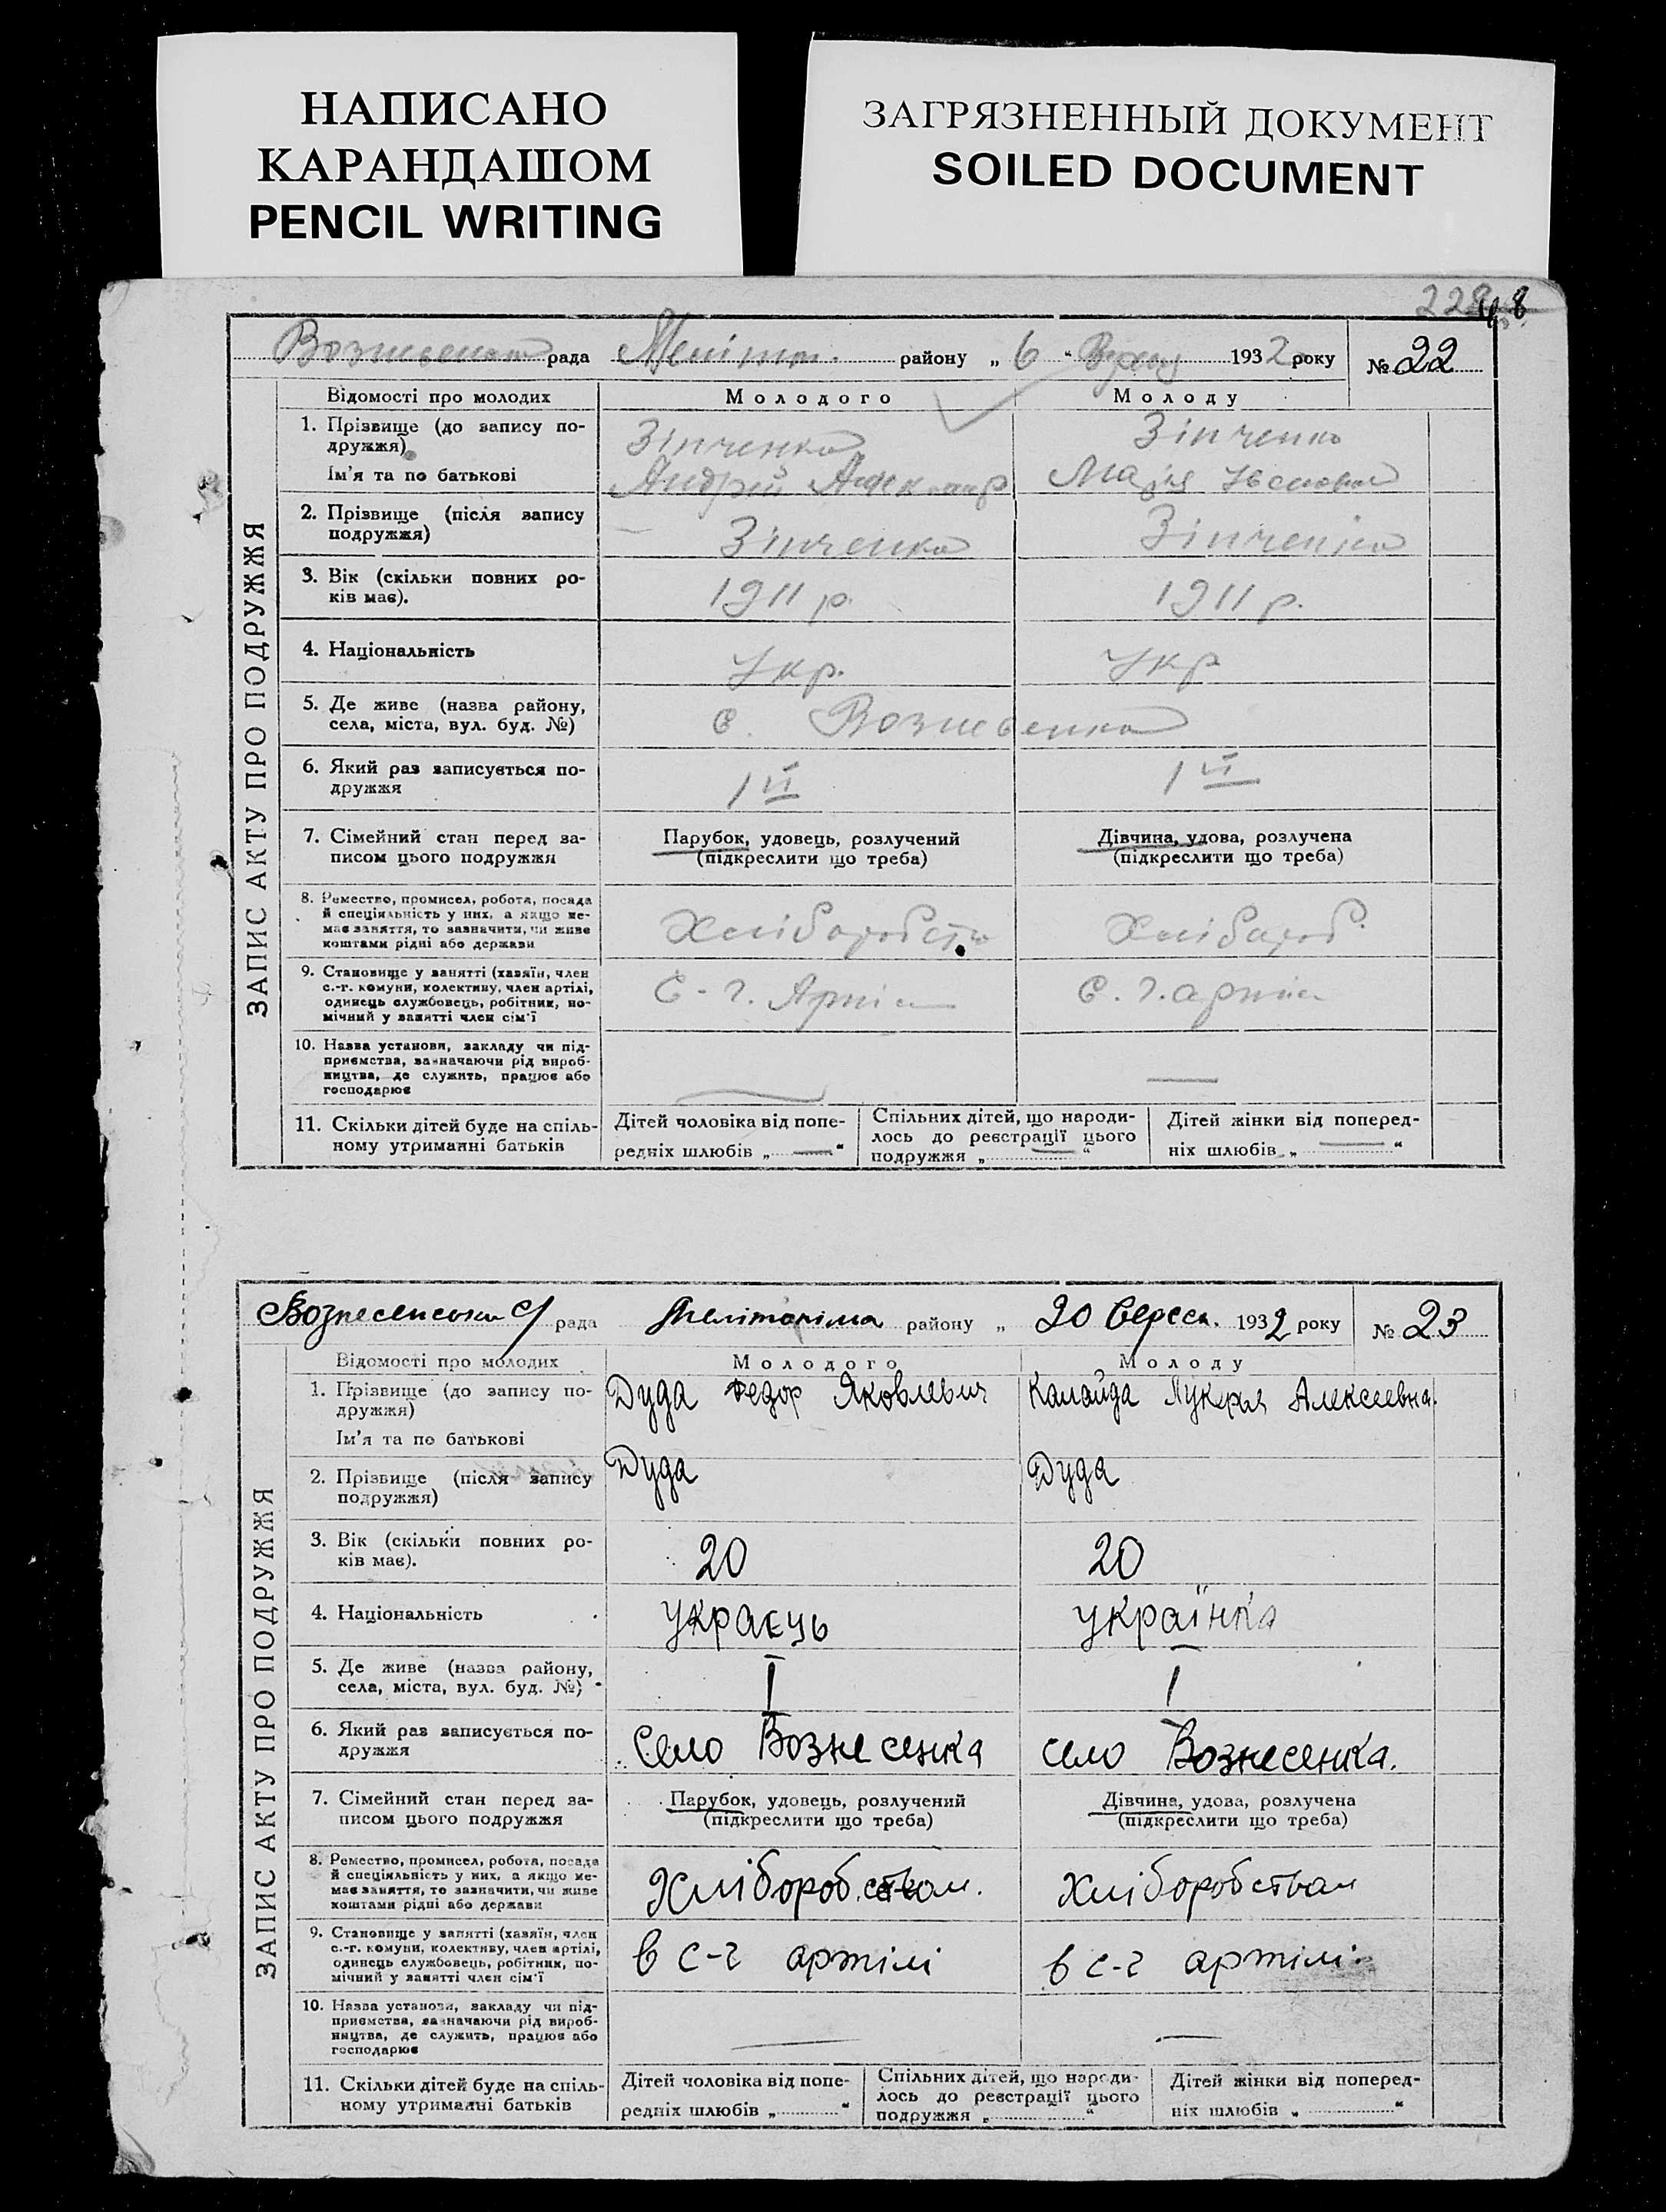 НАПИСАНО
КАРАНДАШОМ
PENCIL WRITING
ЗАГРЯЗНЕННЫЙ ДОКУМЕНТ
SOILED DOCUMENT
рада району „ 6 “ 1932 року № 22
ЗАПИС АКТУ ПРО ПОДРУЖЖЯ
Відомості про молодих Молодого Молоду
1. Прізвище (до запису по-
дружжя) Зінченко Зінченко
Ім'я та по батькові Андрій Марія
2. Прізвище (після запису
подружжя) Зінченко Зінченко
3. Вік (скільки повних ро-
ків має). 1911 р. 1911 р.
4. Національність Укр. Укр
5. Де живе (назва району,
села, міста, вул. буд. №) с.
6. Який раз записується по-
дружжя 1й 1й
7. Сімейний стан перед за- Парубок, удовець, розлучений Дівчина, удова, розлучена
писом цього подружжя (підкреслити що треба) (підкреслити що треба)
8. Ремество, промисел, робота, посада
й спеціяльність у них, а якщо не-
має заняття, то зазначити, чи живе
коштами рідні або держави Хлібороб.
9. Становище у занятті (хазяїн, член
с.-г. комуни, колективу, член артілі,
одинець службовець, робітник, по-
мічний у занятті член сім'ї С-г. С.г.
10. Назва установи, закладу чи під-
приємства, зазначаючи рід вироб-
ництва, де служить, працює або
господарює
11. Скільки дітей буде на спіль-
ному утриманні батьків
Дітей чоловіка від попе-
редніх шлюбів „ — “
Спільних дітей, що народи-
лось до реєстрації цього
подружжя „ — “
Дітей жінки від поперед-
ніх шлюбів „ — “
Вознесенська с/ рада району „ 20 Вересн. 1932 року № 23
ЗАПИС АКТУ ПРО ПОДРУЖЖЯ
Відомості про молодих Молодого Молоду
1. Прізвище (до запису по- Дуда Федор Яковлевич Калайда Лукерия Алексеевна.
дружжя)
Ім'я та по батькові
2. Прізвище (після запису Дуда Дуда
подружжя)
3. Вік (скільки повних ро-
ків має). 20 20
4. Національність украєць українка
5. Де живе (назва району,
села, міста, вул. буд. №) I I
6. Який раз записується по-
дружжя Село Вознесенка село Вознесенка.
7. Сімейний стан перед за- Парубок, удовець, розлучений Дівчина, удова, розлучена
писом цього подружжя (підкреслити що треба) (підкреслити що треба)
8. Ремество, промисел, робота, посада
й спеціяльність у них, а якщо не-
має заняття, то зазначити, чи живе
коштами рідні або держави Хліборобством. Хліборобством
9. Становище у занятті (хазяїн, член
с.-г. комуни, колективу, член артілі,
одинець службовець, робітник, по-
мічний у занятті член сім'ї в с-г артілі в с-г артілі.
10. Назва установи, закладу чи під-
приємства, зазначаючи рід вироб-
ництва, де служить, працює або
господарює
11. Скільки дітей буде на спіль-
ному утриманні батьків
Дітей чоловіка від попе-
редніх шлюбів „ “
Спільних дітей, що народи-
лось до реєстрації цього
подружжя „ “
Дітей жінки від поперед-
ніх шлюбів „ “